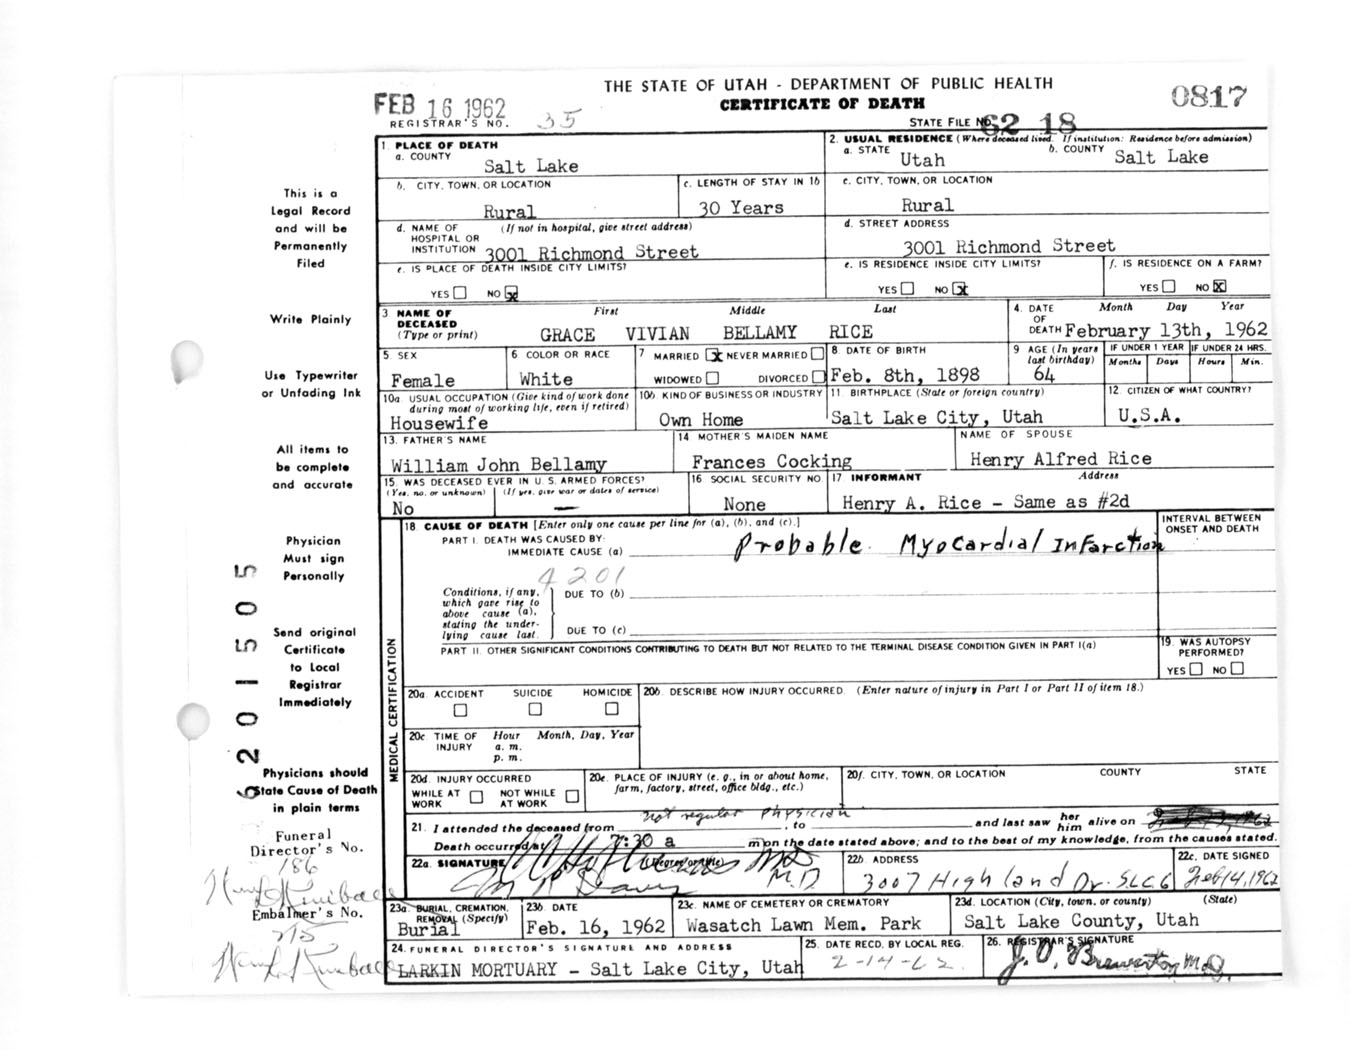 THE STATE OF UTAH - DEPARTMENT OF PUBLIC HEALTH
CERTIFICATE OF DEATH
0817
FEB 16 1962
REGISTRAR'S NO. 35
STATE FILE NO. 62 18
This is a
Legal Record
and will be
Permanently
Filed
Write Plainly
Use Typewriter
or Unfading Ink
All items to
be complete
and accurate
Physician
Must sign
Personally
Send original
Certificate
to Local
Registrar
Immediately
Physicians should
State Cause of Death
in plain terms
Funeral
Director's No.
186
Embalmer's No.
215
201505
1. PLACE OF DEATH
a. COUNTY
Salt Lake
2. USUAL RESIDENCE (Where deceased lived. If institution: Residence before admission)
a. STATE Utah b. COUNTY Salt Lake
b. CITY, TOWN, OR LOCATION
Rural
c. LENGTH OF STAY IN 1b
30 Years
c. CITY, TOWN, OR LOCATION
Rural
d. NAME OF HOSPITAL OR INSTITUTION (If not in hospital, give street address)
3001 Richmond Street
d. STREET ADDRESS
3001 Richmond Street
e. IS PLACE OF DEATH INSIDE CITY LIMITS?
YES NO x
e. IS RESIDENCE INSIDE CITY LIMITS?
YES NO x
f. IS RESIDENCE ON A FARM?
YES NO x
3 NAME OF DECEASED (Type or print) First Middle Last
GRACE VIVIAN BELLAMY RICE
4. DATE OF DEATH Month Day Year
February 13th, 1962
5. SEX
Female
6 COLOR OR RACE
White
7 MARRIED x NEVER MARRIED
WIDOWED DIVORCED
8. DATE OF BIRTH
Feb. 8th, 1898
9 AGE (In years last birthday)
64
IF UNDER 1 YEAR
Months Days
IF UNDER 24 HRS.
Hours Min.
10a. USUAL OCCUPATION (Give kind of work done during most of working life, even if retired)
Housewife
10b KIND OF BUSINESS OR INDUSTRY
Own Home
11. BIRTHPLACE (State or foreign country)
Salt Lake City, Utah
12. CITIZEN OF WHAT COUNTRY?
U.S.A.
13. FATHER'S NAME
William John Bellamy
14 MOTHER'S MAIDEN NAME
Frances Cocking
NAME OF SPOUSE
Henry Alfred Rice
15. WAS DECEASED EVER IN U. S. ARMED FORCES?
(Yes, no, or unknown) (If yes, give war or dates of service)
No —
16 SOCIAL SECURITY NO.
None
17 INFORMANT Address
Henry A. Rice - Same as #2d
MEDICAL CERTIFICATION
18 CAUSE OF DEATH [Enter only one cause per line for (a), (b), and (c).]
PART I. DEATH WAS CAUSED BY:
IMMEDIATE CAUSE (a) Probable Myocardial Infarction
INTERVAL BETWEEN ONSET AND DEATH
4201
Conditions, if any, which gave rise to above cause (a), stating the underlying cause last.
DUE TO (b)
DUE TO (c)
PART II. OTHER SIGNIFICANT CONDITIONS CONTRIBUTING TO DEATH BUT NOT RELATED TO THE TERMINAL DISEASE CONDITION GIVEN IN PART I(a)
19. WAS AUTOPSY PERFORMED?
YES NO
20a. ACCIDENT SUICIDE HOMICIDE
20b. DESCRIBE HOW INJURY OCCURRED. (Enter nature of injury in Part I or Part II of item 18.)
20c. TIME OF INJURY Hour a. m. p. m. Month, Day, Year
20d. INJURY OCCURRED
WHILE AT WORK NOT WHILE AT WORK
20e. PLACE OF INJURY (e. g., in or about home, farm, factory, street, office bldg., etc.)
20f. CITY, TOWN, OR LOCATION COUNTY STATE
not regular physician
21. I attended the deceased from , to and last saw her him alive on
Death occurred at 7:30 a m on the date stated above; and to the best of my knowledge, from the causes stated.
22a. SIGNATURE (Degree or title) MD
M.D.
22b. ADDRESS
3007 Highland Dr. SLC 6
22c. DATE SIGNED
Feb 14, 1962
23a. BURIAL, CREMATION, REMOVAL (Specify)
Burial
23b DATE
Feb. 16, 1962
23c. NAME OF CEMETERY OR CREMATORY
Wasatch Lawn Mem. Park
23d. LOCATION (City, town, or county) (State)
Salt Lake County, Utah
24. FUNERAL DIRECTOR'S SIGNATURE AND ADDRESS
LARKIN MORTUARY - Salt Lake City, Utah
25. DATE RECD. BY LOCAL REG.
2-14-62
26. REGISTRAR'S SIGNATURE